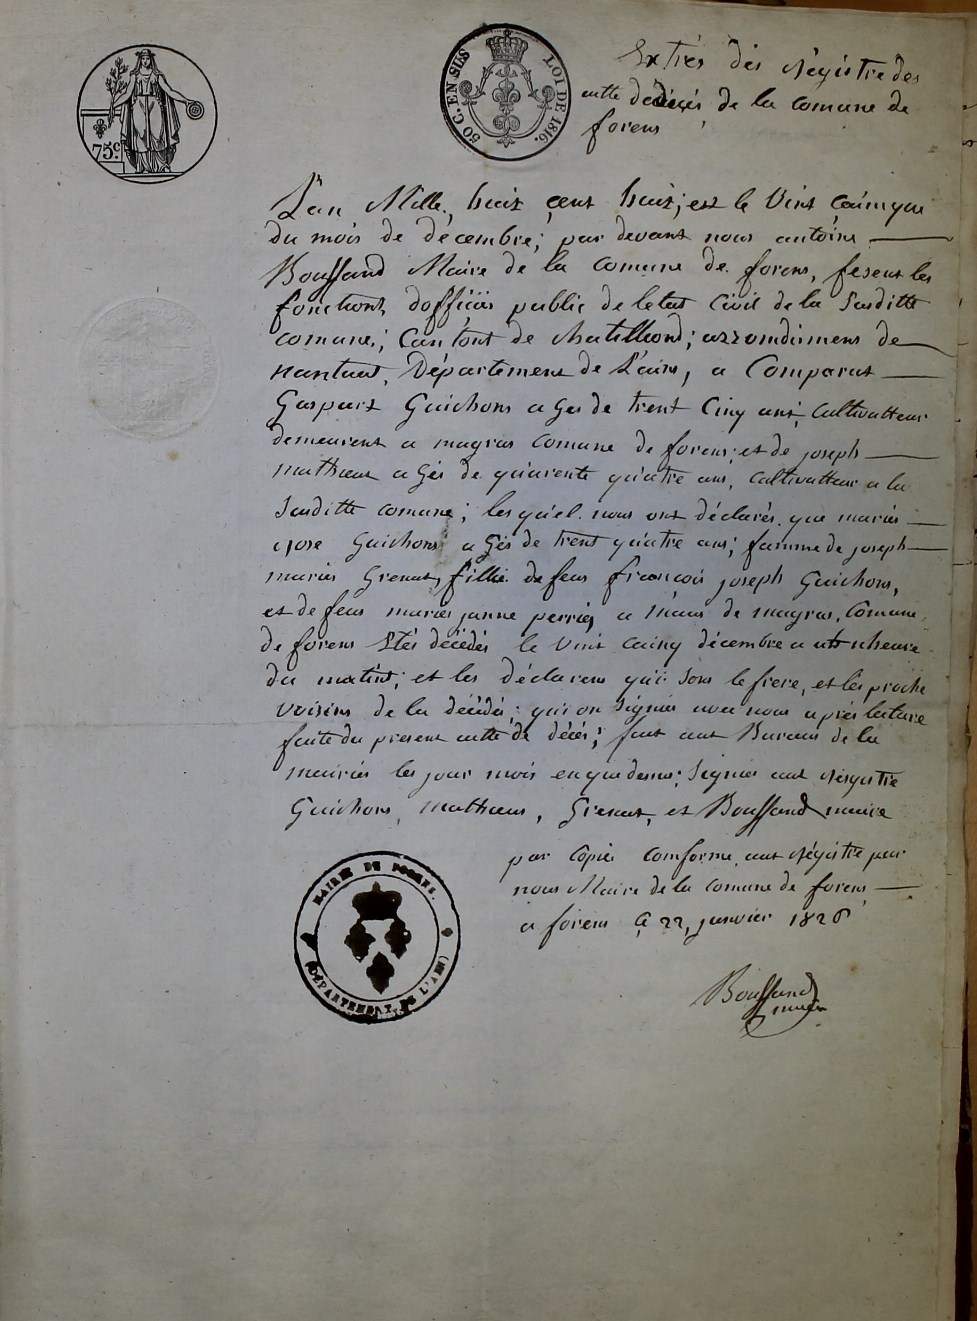 75.c
50 C. EN SUS LOI DE 1816.
Extrés des régistre des
actte de décés de la comune de
forens
L'an Mille, huit cent huit, est le vint cainque
du mois de décembre; par devant nous antoine
Bouffand Maire de la comune de forens, fesent les
fonctions dofficiis public de letat Civil de la Susditte
comune; Cantont de chatilliond; arrondiment de
nantuat, Département de L'ains, a Comparut
Gaspart Guichons a Gés de trent Cinq ans, cultivatteur
demeurent a magras comune de forens; et de joseph
mathieux a Gés de quarente quatre ans, cultivatteur a la
Susditte comune; les quel nous ont déclarés que mariés
rose Guichons a Gés de trent quatre ans; famme de joseph
mariés Grenat, fillie de feus françois joseph Guichons,
et de feus mariés janne perriés a maus de magras, Comune
de forens Etés décédés le vint cainq décembre a uht nheure
du matint; et les déclarens qui sons le frere, et lés proche
voisins de la décédés; qui on signés avec nous aprés lecture
faite du present actte de décés; fait aut Bureaus de la
mairiés les jour mois en que dessus; signés aut régistre
Guichons, mathieux, Grenat, et Bouffand maire
par copiés comforme aut régistre par
nous Maire de la comune de forens
a forens Ce 22, janvier 1826
MAIRIE DE FORENS.
(DÉPARTEMENT DE L'AIN)
Bouffand
maire